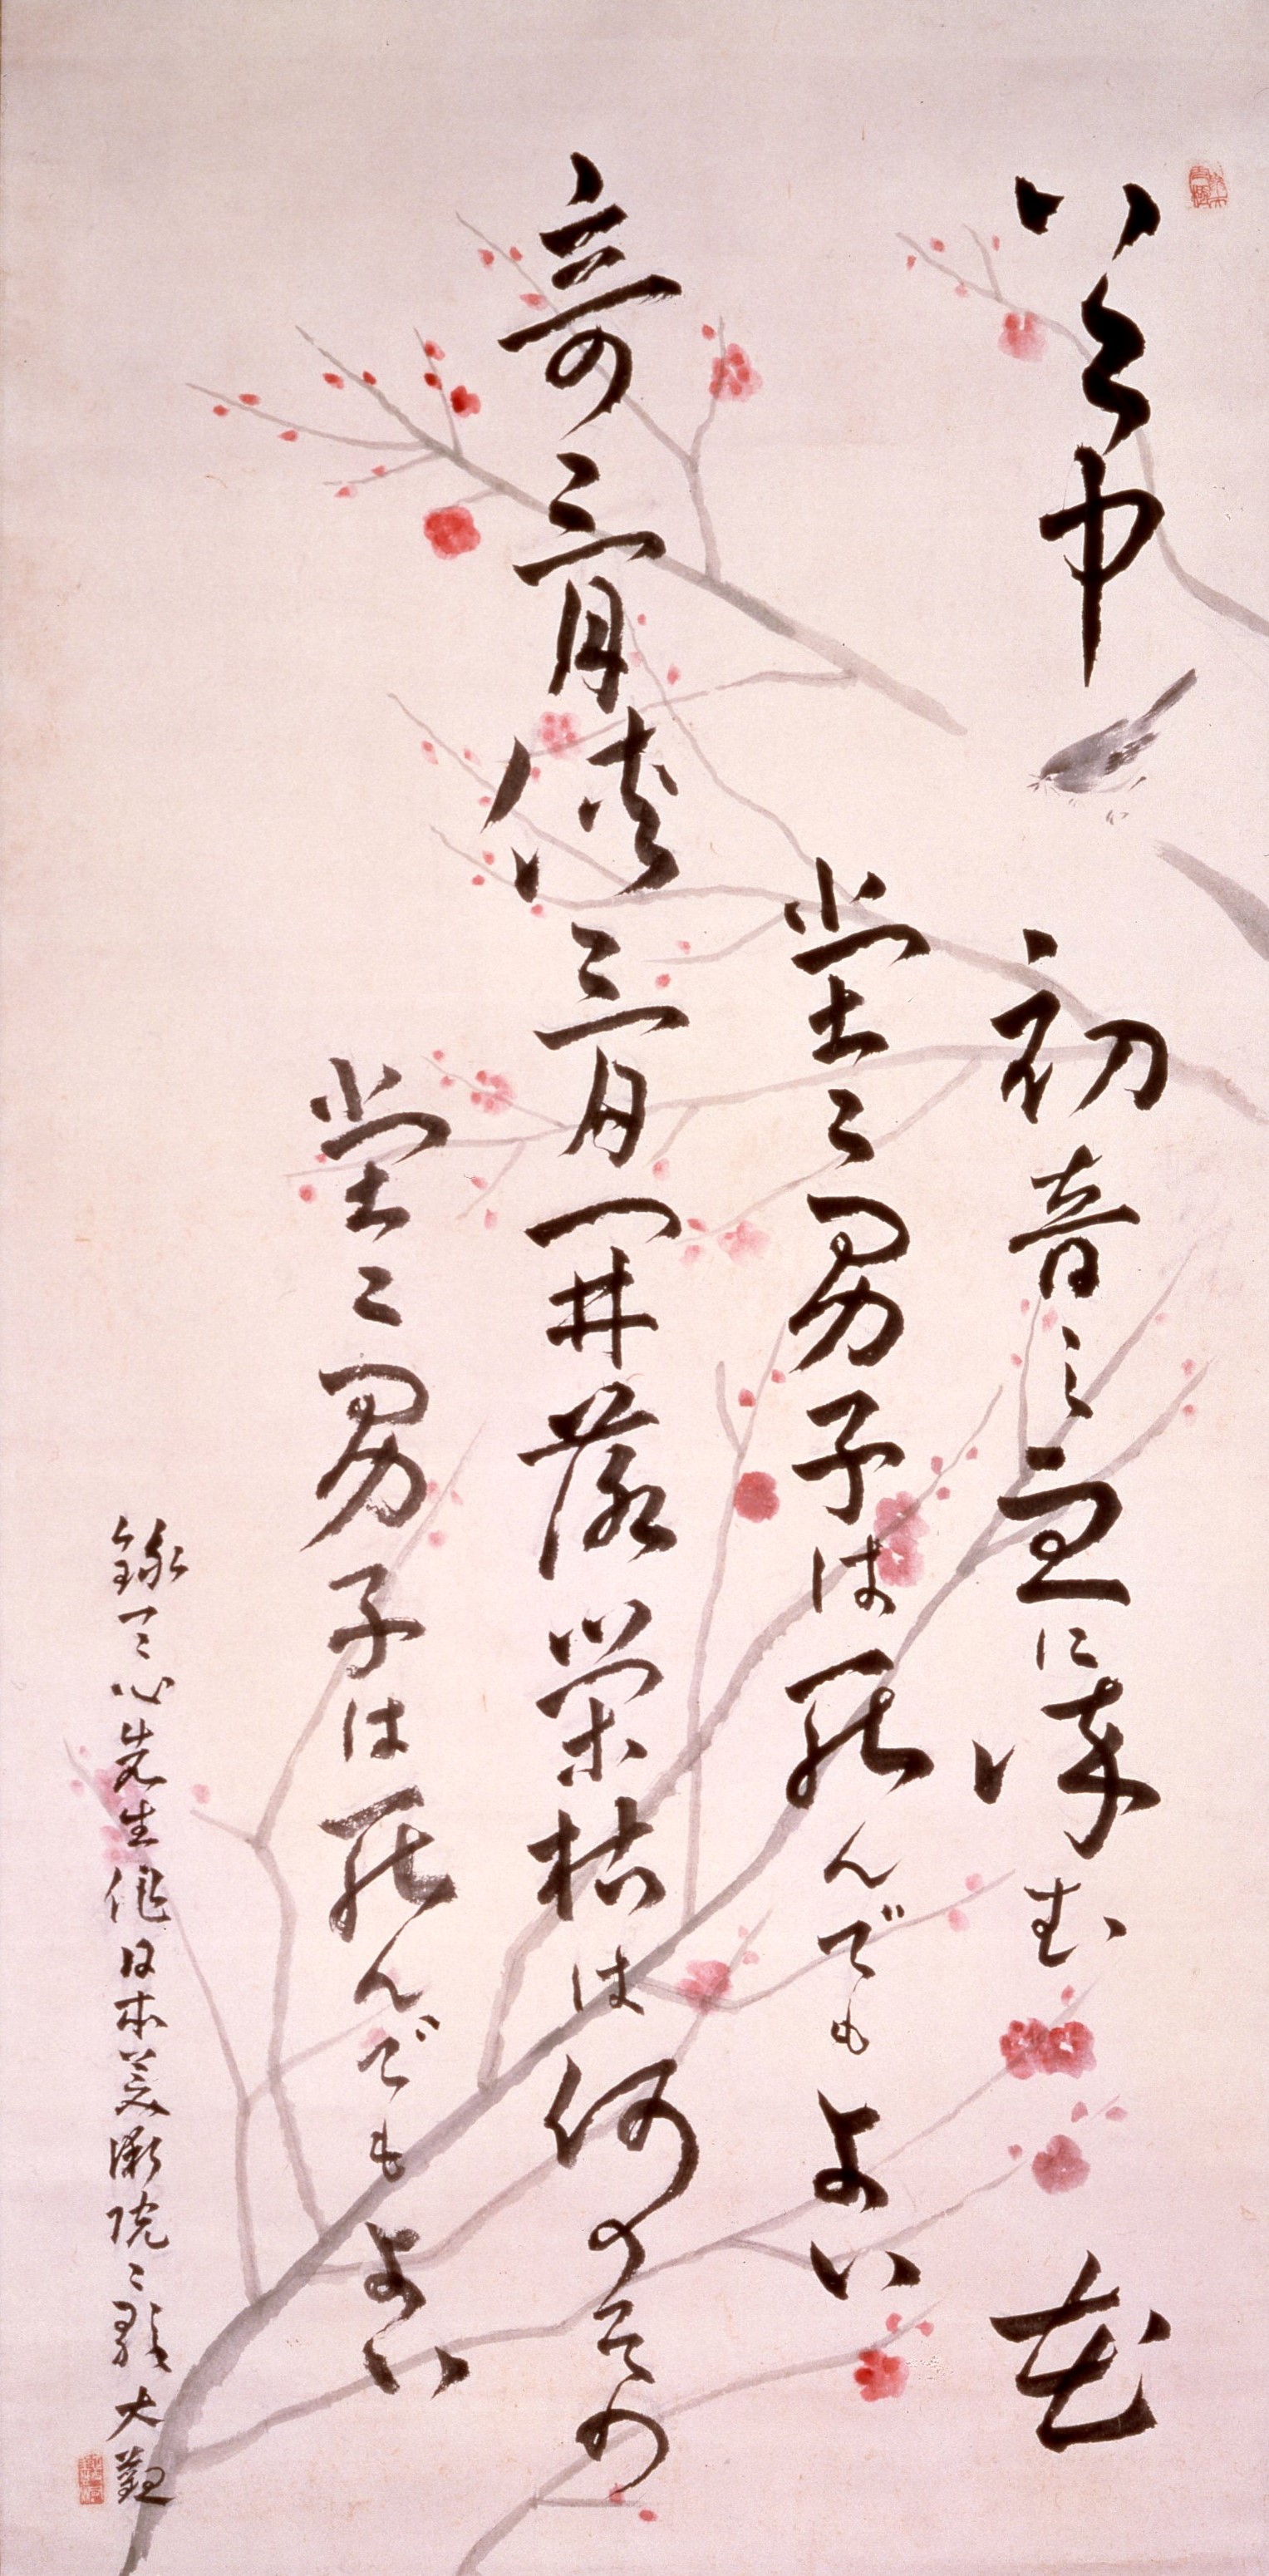 谷中初音之血に染む花
堂々男子は死んでもよい
奇骨侠骨開落栄枯は何のその
堂々男子は死んでもよい
録天心先生作日本美術院々歌 大観